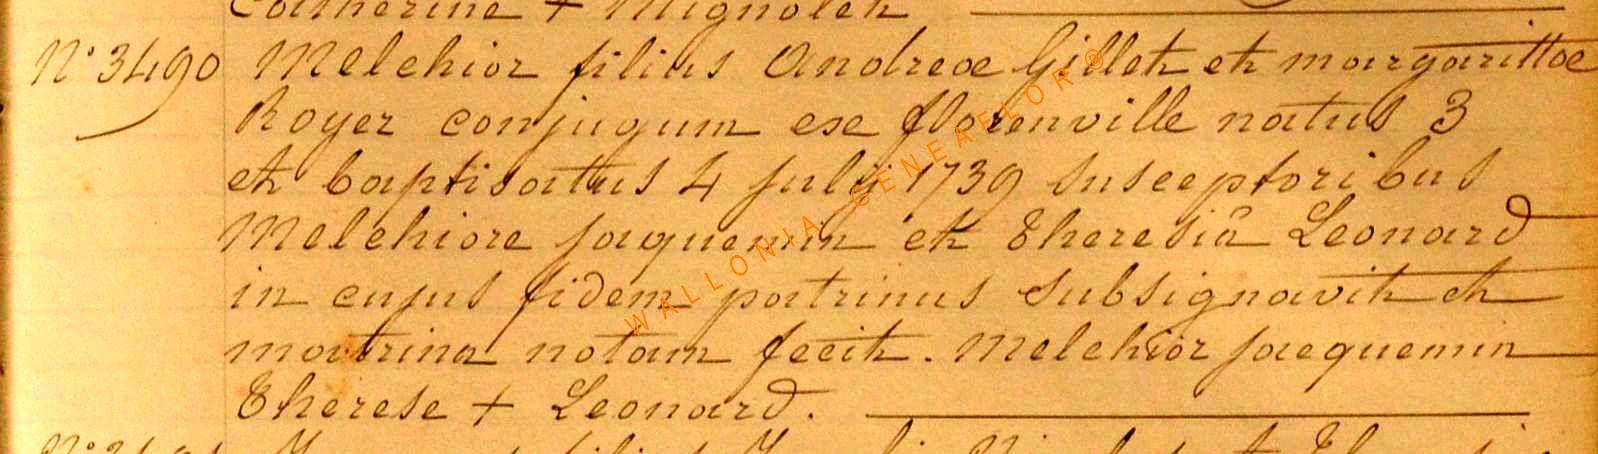 Catherine + Mignolet
N° 3490 Melchior filius Andreæ Gillet et margarittæ
Royer conjugum ex florenville natus 3
et baptisatus 4 julÿ 1739 susceptoribus
Melchiore jaquemin et Theresiâ Leonard
in cujus fidem patrinus subsignavit et
matrina notam fecit. Melchior jacquemin
Therese + Leonard.
WALLONIA-GENEAFLOR©